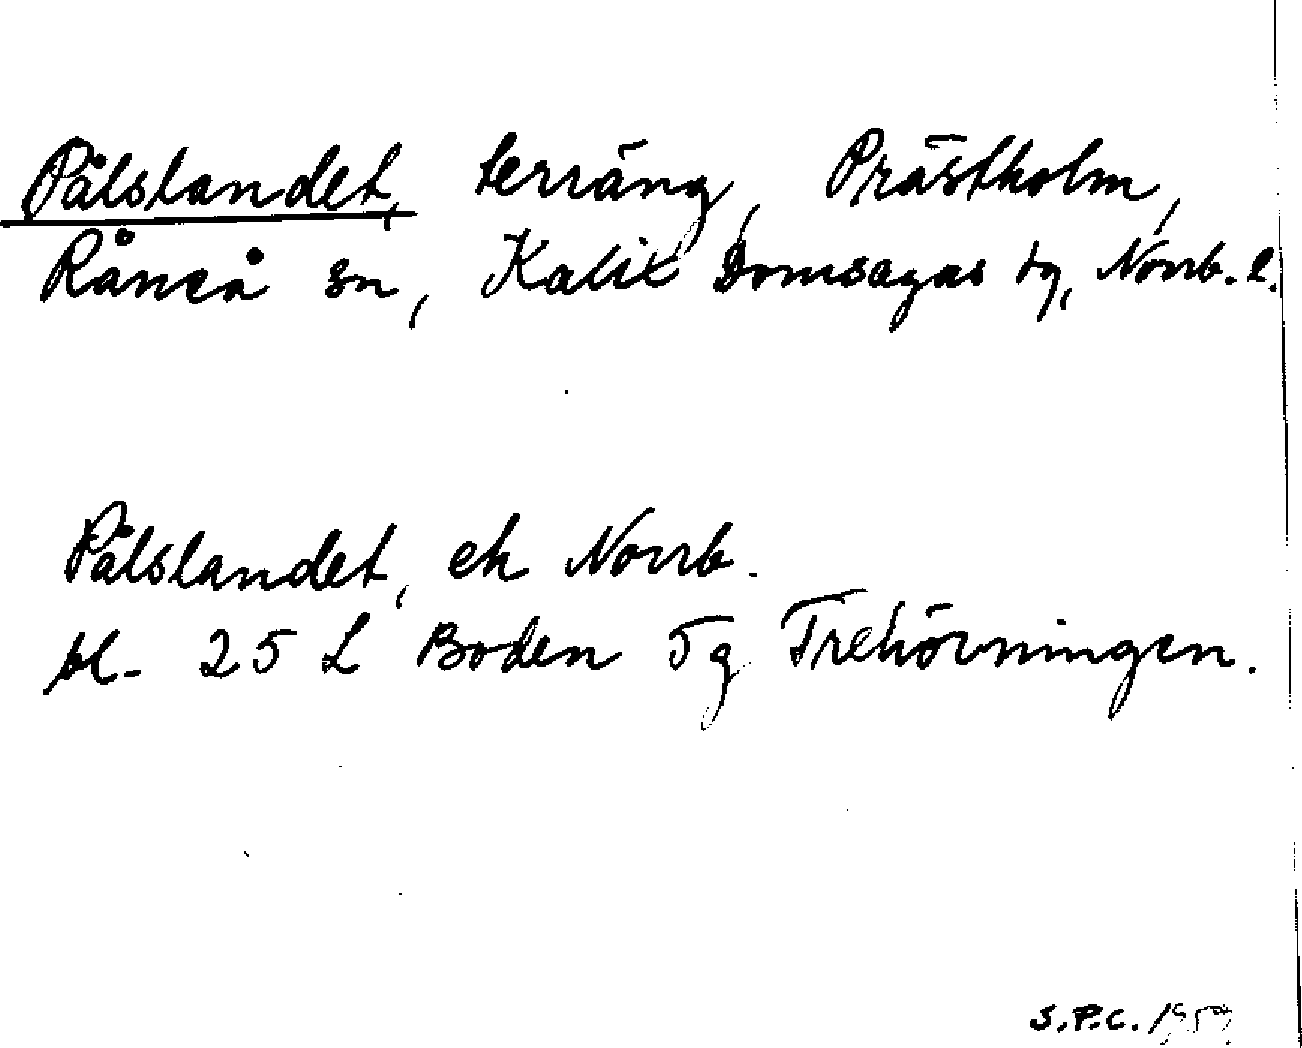 Pålslandet, terräng, Prästholm,
Råneå sn, Kalix Domsagas tg, Norrb. l.
Pålslandet, ek Norrb.
bl. 25 L Boden 5g Trehörningen.
S.P.C.